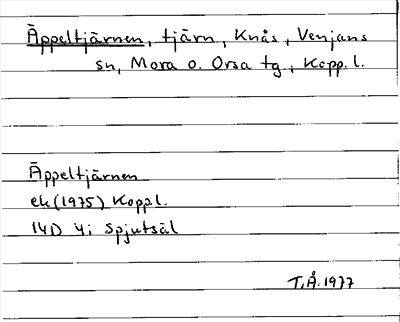 Äppeltjärnen, tjärn, Knås, Venjans
sn, Mora o. Orsa tg, Kopp. l.
Äppeltjärnen
ek (1975) Koppl.
14D 4i Spjutsäl
T.Å. 1977